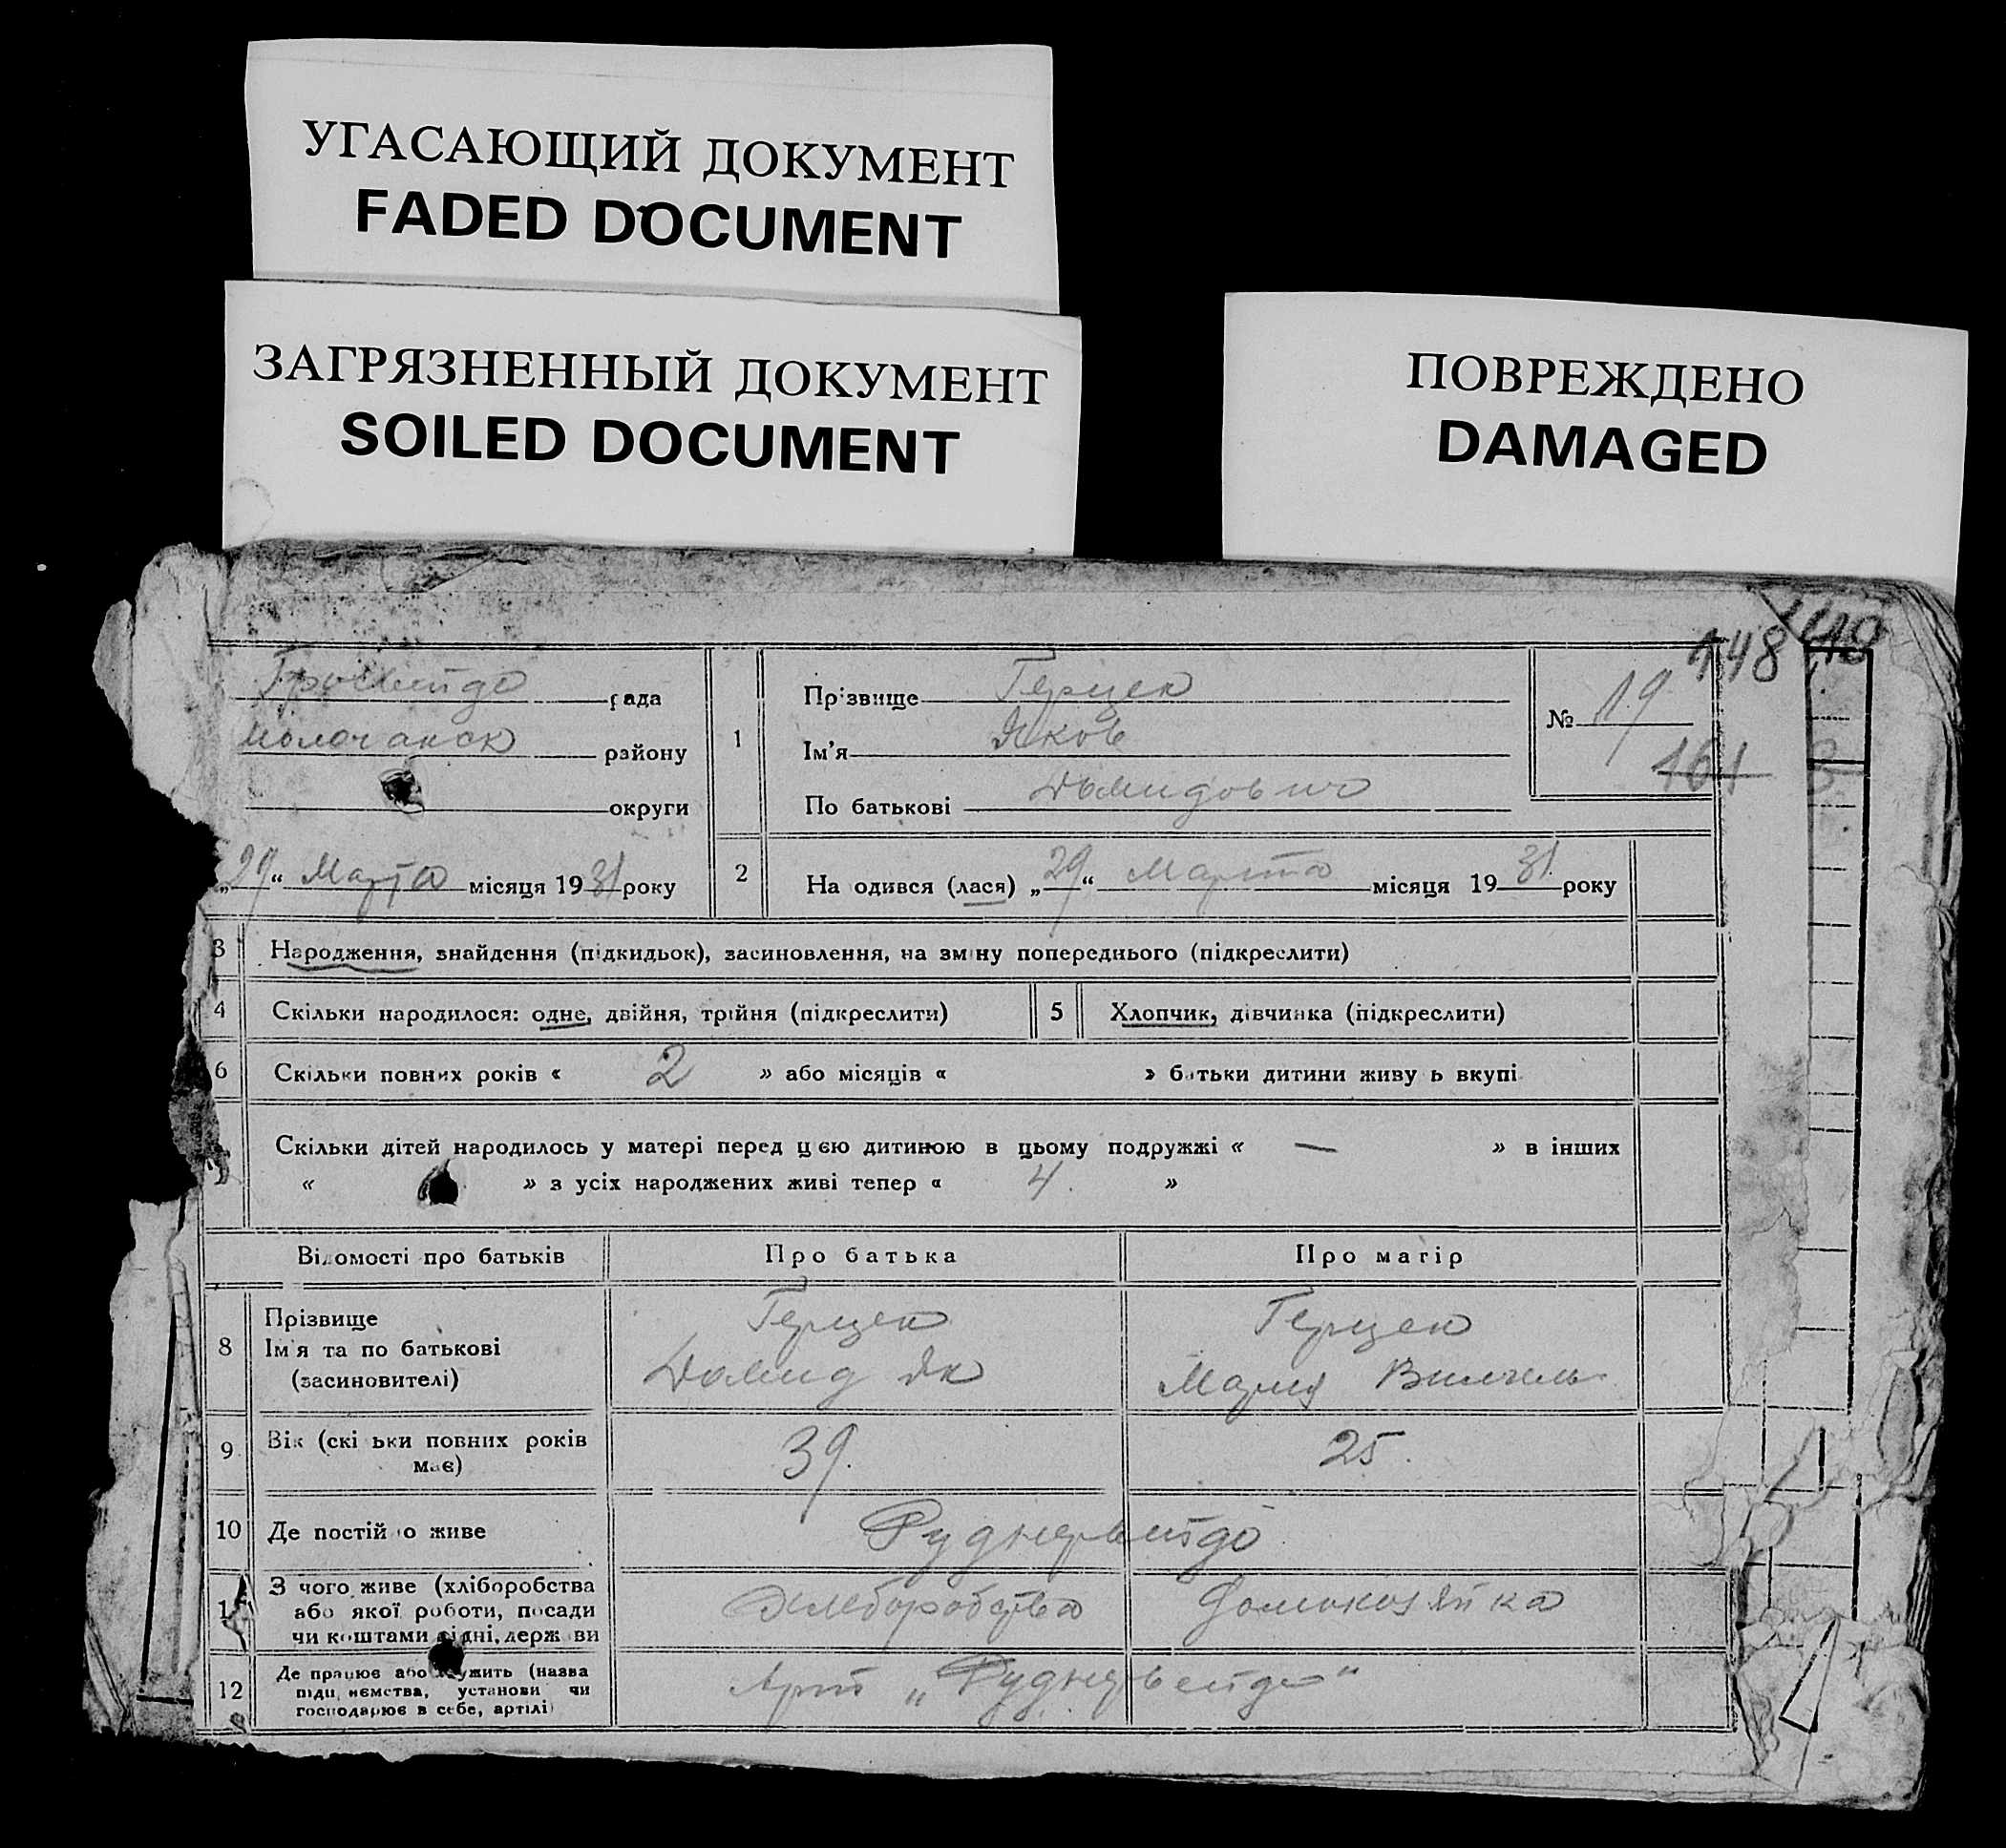 УГАСАЮЩИЙ ДОКУМЕНТ
FADED DOCUMENT
ЗАГРЯЗНЕННЫЙ ДОКУМЕНТ
SOILED DOCUMENT
ПОВРЕЖДЕНО
DAMAGED
148
рада
Молочанск району
округи
1
Прізвище
Ім'я Яков
По батькові Давидович
№ 19
161
„29“ Марта місяця 1931 року
2 На одився (лася) „29“ Марта місяця 1931 року
3 Народження, знайдення (підкидьок), засиновлення, на зміну попереднього (підкреслити)
4 Скільки народилося: одне, двійня, трійня (підкреслити) 5 Хлопчик, дівчинка (підкреслити)
6 Скільки повних років « 2 » або місяців « » батьки дитини живу ь вкупі
Скільки дітей народилось у матері перед цією дитиною в цьому подружжі « — » в інших
« » з усіх народжених живі тепер « 4 »
Відомості про батьків Про батька Про матір
8 Прізвище
Ім'я та по батькові Давид Як Мария
(засиновителі)
9 Вік (скі ьки повних років має) 39. 25.
10 Де постій о живе Руднервейде
11 З чого живе (хліборобства
або якої роботи, посади
чи коштами рідні, держ ви
Хлеборобства домохозяйка
12 Де працює або служить (назва
підп иємства, установи чи
господарює в себе, артілі)
Арт „Руднервейде“